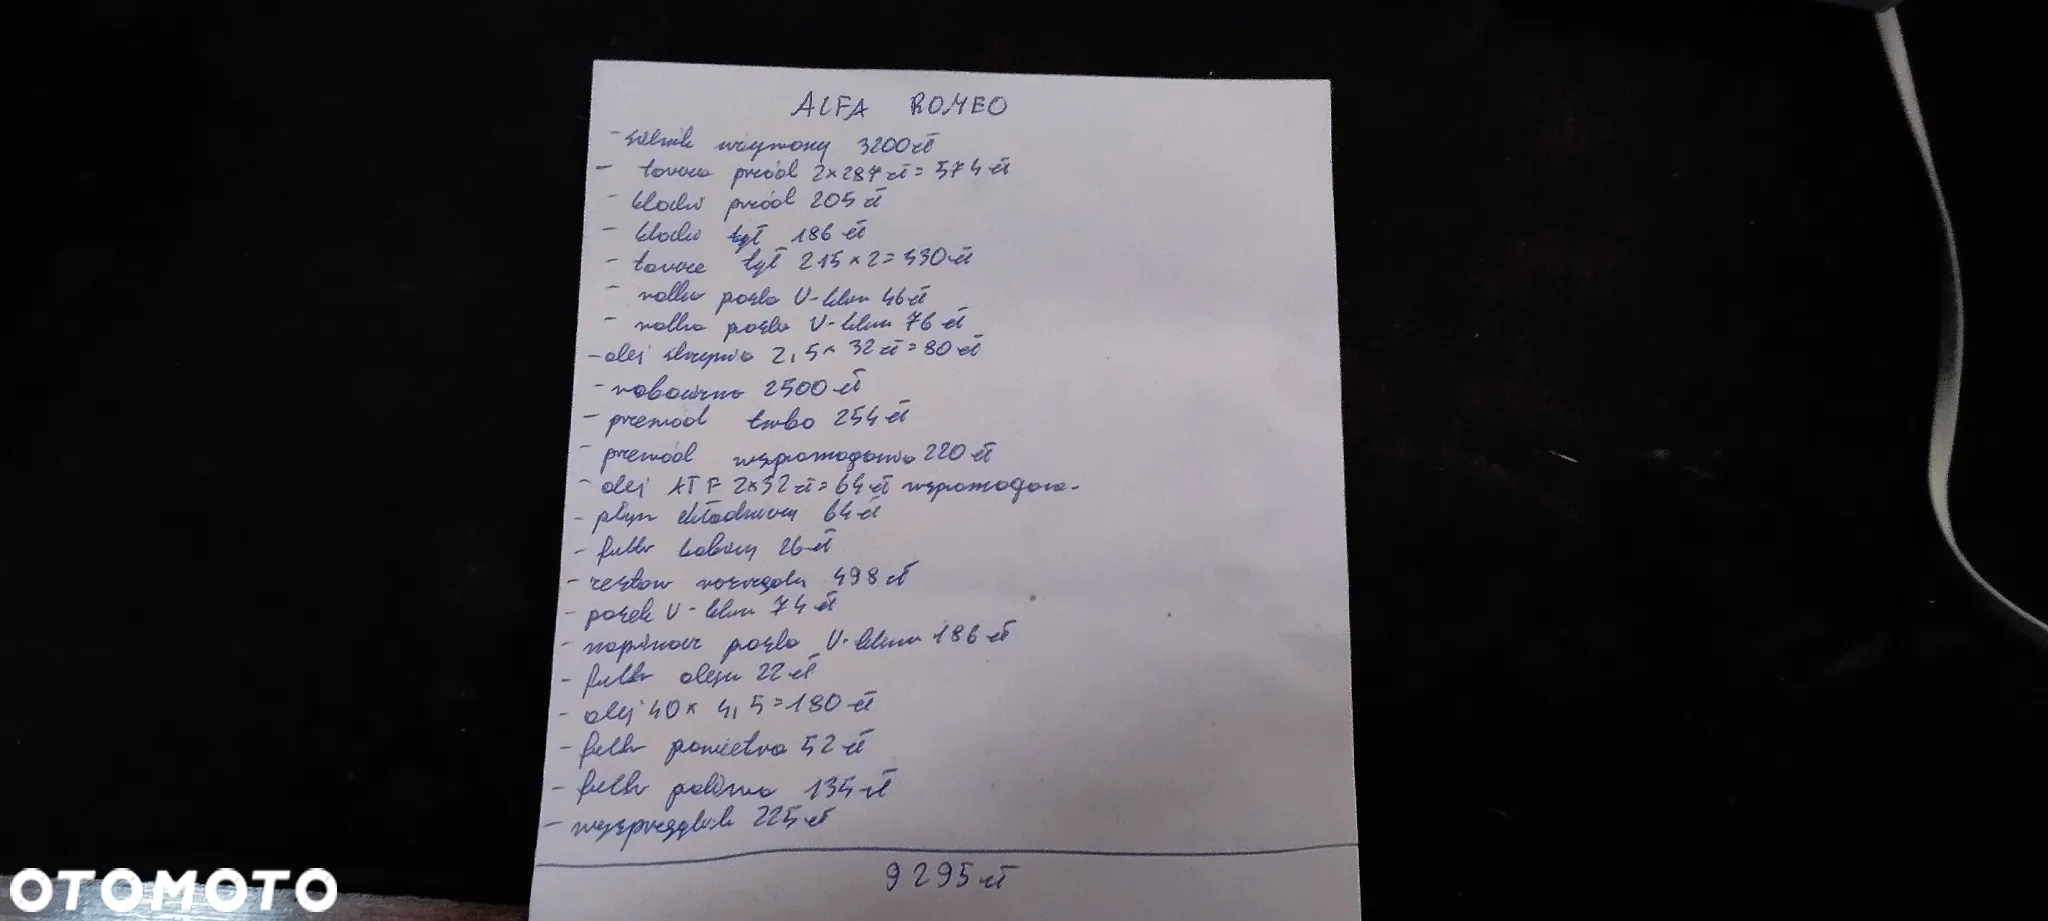 ALFA ROMEO
- silnik używany 3200 zł
- tarcze przód 2x287 zł = 574 zł
- klocki przód 205 zł
- klocki tył 186 zł
- tarcze tył 215 x 2 = 430 zł
- rolka paska V-klin 46 zł
- rolka paska V-klin 76 zł
- olej skrzynia 2,5 x 32 zł = 80 zł
- robocizna 2500 zł
- przewód turbo 254 zł
- przewód wspomagania 220 zł
- olej ATF 2x32 zł = 64 zł wspomaga-
- płyn chłodniczy 64 zł
- filtr kabiny 26 zł
- zestaw rozrządu 498 zł
- pasek V-klin 74 zł
- napinacz paska V-klin 186 zł
- filtr oleju 22 zł
- olej 40 x 4,5 = 180 zł
- filtr powietrza 52 zł
- filtr paliwa 134 zł
- wysprzęglik 225 zł
9295 zł
OTOMOTO